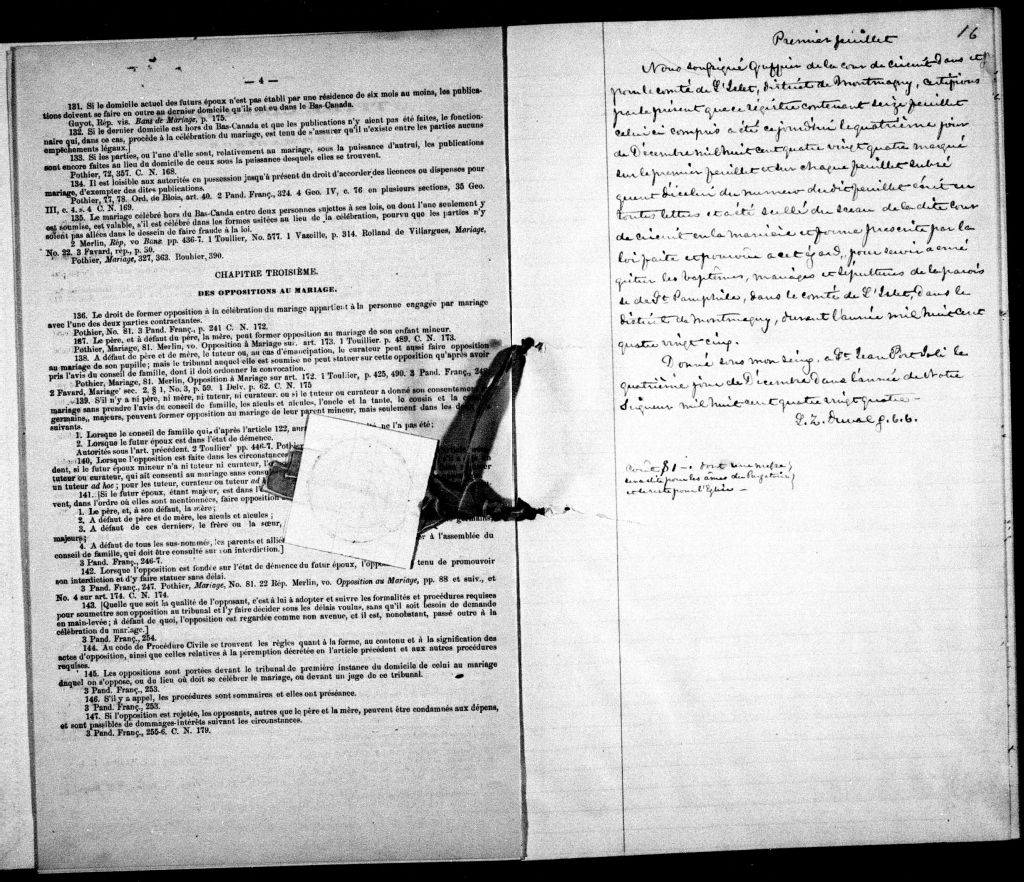 — 4 —
131. Si le domicile actuel des futurs époux n'est pas établi par une résidence de six mois au moins, les publica-
tions doivent se faire en outre au dernier domicile qu'ils ont eu dans le Bas-Canada.
Guyot, Rép. vis. Bans de Mariage, p. 175.
132. Si le dernier domicile est hors du Bas-Canada et que les publications n'y aient pas été faites, le fonction-
naire qui, dans ce cas, procède à la célébration du mariage, est tenu de s'assurer qu'il n'existe entre les parties aucuns
empêchements légaux.]
133. Si les parties, ou l'une d'elle sont, relativement au mariage, sous la puissance d'autrui, les publications
sont encore faites au lieu du domicile de ceux sous la puissance desquels elles se trouvent.
Pothier, 72, 357. C. N. 168.
134. Il est loisible aux autorités en possession jusqu'à présent du droit d'accorder des licences ou dispenses pour
mariage, d'exempter des dites publications.
Pothier, 77, 78. Ord. de Blois, art. 40. 2 Pand. Franç., 324. 4 Geo. IV, c. 76 en plusieurs sections, 35 Geo.
III, c. 4, s. 4 C. N. 169.
135. Le mariage célébré hors du Bas-Canda entre deux personnes sujettes à ses lois, ou dont l'une seulement y
est soumise, est valable, s'il est célébré dans les formes usitées au lieu de la célébration, pourvu que les parties n'y
soient pas allées dans le dessein de faire fraude à la loi.
2 Merlin, Rép, vo Bans pp. 436-7. 1 Toullier, No. 577. 1 Vazeille, p. 314. Rolland de Villargues, Mariage,
No. 22. 3 Favard, rép., p. 50.
Pothier, Mariage, 327, 363. Bouhier, 390.
CHAPITRE TROISIÈME.
DES OPPOSITIONS AU MARIAGE.
136. Le droit de former opposition à la célébration du mariage appartient à la personne engagée par mariage
avec l'une des deux parties contractantes.
Pothier, No. 81. 3 Pand. Franç., p. 241 C. N. 172.
137. Le père, et à défaut du père, la mère, peut former opposition au mariage de son enfant mineur.
Pothier, Mariage, 81. Merlin, vo. Opposition à Mariage sur. art. 173. 1 Touillier. p. 489. C. N. 173.
138. A défaut de père et de mère, le tuteur ou, au cas d'émancipation, le curateur peut aussi faire opposition
au mariage de son pupille; mais le tribunal auquel elle est soumise ne peut statuer sur cette opposition qu'après avoir
pris l'avis du conseil de famille, dont il doit ordonner la convocation.
Pothier, Mariage, 81. Merlin, Opposition à Mariage sur art. 172. 1 Toullier, p. 425, 490. 3 Pand. Franç.,
2 Favard, Mariage sec. 2. § 1, No. 3, p. 59. 1 Delv. p. 62. C. N. 175
139. S'il n'y a ni père, ni mère, ni tuteur, ni curateur. ou si le tuteur ou curateur a donné son consentement
mariage sans prendre l'avis du conseil de famille, les aïeuls et aïeules, l'oncle et la tante, le cousin et la
germains, majeurs, peuvent former opposition au mariage de leur parent mineur, mais seulement dans les
suivants.
1. Lorsque le conseil de famille qui, d'après l'article 122, ne l'a pas été;
2. Lorsque le futur époux est dans l'état de démence.
Autorités sous l'art. précédent. 2 Toullier pp. 446-7.
140. Lorsque l'opposition est faite dans les circonstances
dent, si le futur époux mineur n'a ni tuteur ni curateur,
tuteur ou curateur, qui ait consenti au mariage sans
un tuteur ad hoc; pour les tuteur, curateur ou tuteur ad
141. [Si le futur époux, étant majeur, est dans
vent, dans l'ordre où elles sont mentionnées, faire opposition
1. Le père, et, à son défaut, la mère;
2. A défaut de père et de mère, les aïeuls et aïeules;
3. A défaut de ces derniers, le frère ou la sœur, germains,
majeurs;
4. A défaut de tous les sus-nommés, les parents et à l'assemblée du
conseil de famille, qui doit être consulté sur son interdiction.]
3 Pand. Franç., 246-7.
142. Lorsque l'opposition est fondée sur l'état de démence du futur époux, tenu de promouvoir
son interdiction et d'y faire statuer sans délai.
3 Pand. Franç., 247. Pothier, Mariage, No. 81. 22 Rép. Merlin, vo. Opposition au Mariage, pp. 88 et suiv., et
No. 4 sur art. 174. C. N. 174.
143. [Quelle que soit la qualité de l'opposant, c'est à lui à adopter et suivre les formalités et procédures requises
pour soumettre son opposition au tribunal et l'y faire décider sous les délais voulus, sans qu'il soit besoin de demande
en main-levée; à défaut de quoi, l'opposition est regardée comme non avenue, et il est, nonobstant, passé outre à la
célébration du mariage.]
3 Pand. Franç., 254.
144. Au code de Procédure Civile se trouvent les règles quant à la forme, au contenu et à la signification des
actes d'opposition, ainsi que celles relatives à la péremption décrétée en l'article précédent et aux autres procédures
requises.
145. Les oppositions sont portées devant le tribunal de première instance du domicile de celui au mariage
duquel on s'oppose, ou du lieu où doit se célébrer le mariage, ou devant un juge de ce tribunal.
3 Pand. Franç., 253.
146. S'il y a appel, les procédures sont sommaires et elles ont préséance.
3 Pand. Franç., 253.
147. Si l'opposition est rejetée, les opposants, autres que le père et la mère, peuvent être condamnés aux dépens,
et sont passibles de dommages-intérêts suivant les circonstances.
3 Pand. Franç., 255-6. C. N. 179.
16
Premier feuillet
Nous soussigné Greffier de la cour de circuit dans et
pour le comté de L'Islet, district de Montmagny, certifions
par le présent que ce régistre contenant seize feuillet
celui ci compris a été ce jourd'hui le quatrième jour
de Décembre mil huit cent quatre vingt quatre marqué
sur le premier feuillet et sur chaque feuillet subsé
quent d'icelui du numero du dit feuillet écrit en
toutes lettres et a été scellé du sceau de la dite cour
de circuit en la manière et forme prescrite par la
loi faite et pourvue à cet égard, pour servir à enré
gistrer les baptêmes, mariages et sépultures de la parois
se de St Pamphile, dans le comté de L'Islet, dans le
district de Montmagny, durant l'année mil huit cent
quatre vingt cinq.
Donné sous mon seing, à St Jean Port Joli le
quatrième jour de Décembre dans l'année de Notre
Seigneur mil huit cent quatre vingt quatre —
L. Z. Duval g. c. c.
$1 — dont une messe
sera dite pour les âmes du Purgatoire,
et le reste pour l'Eglise —